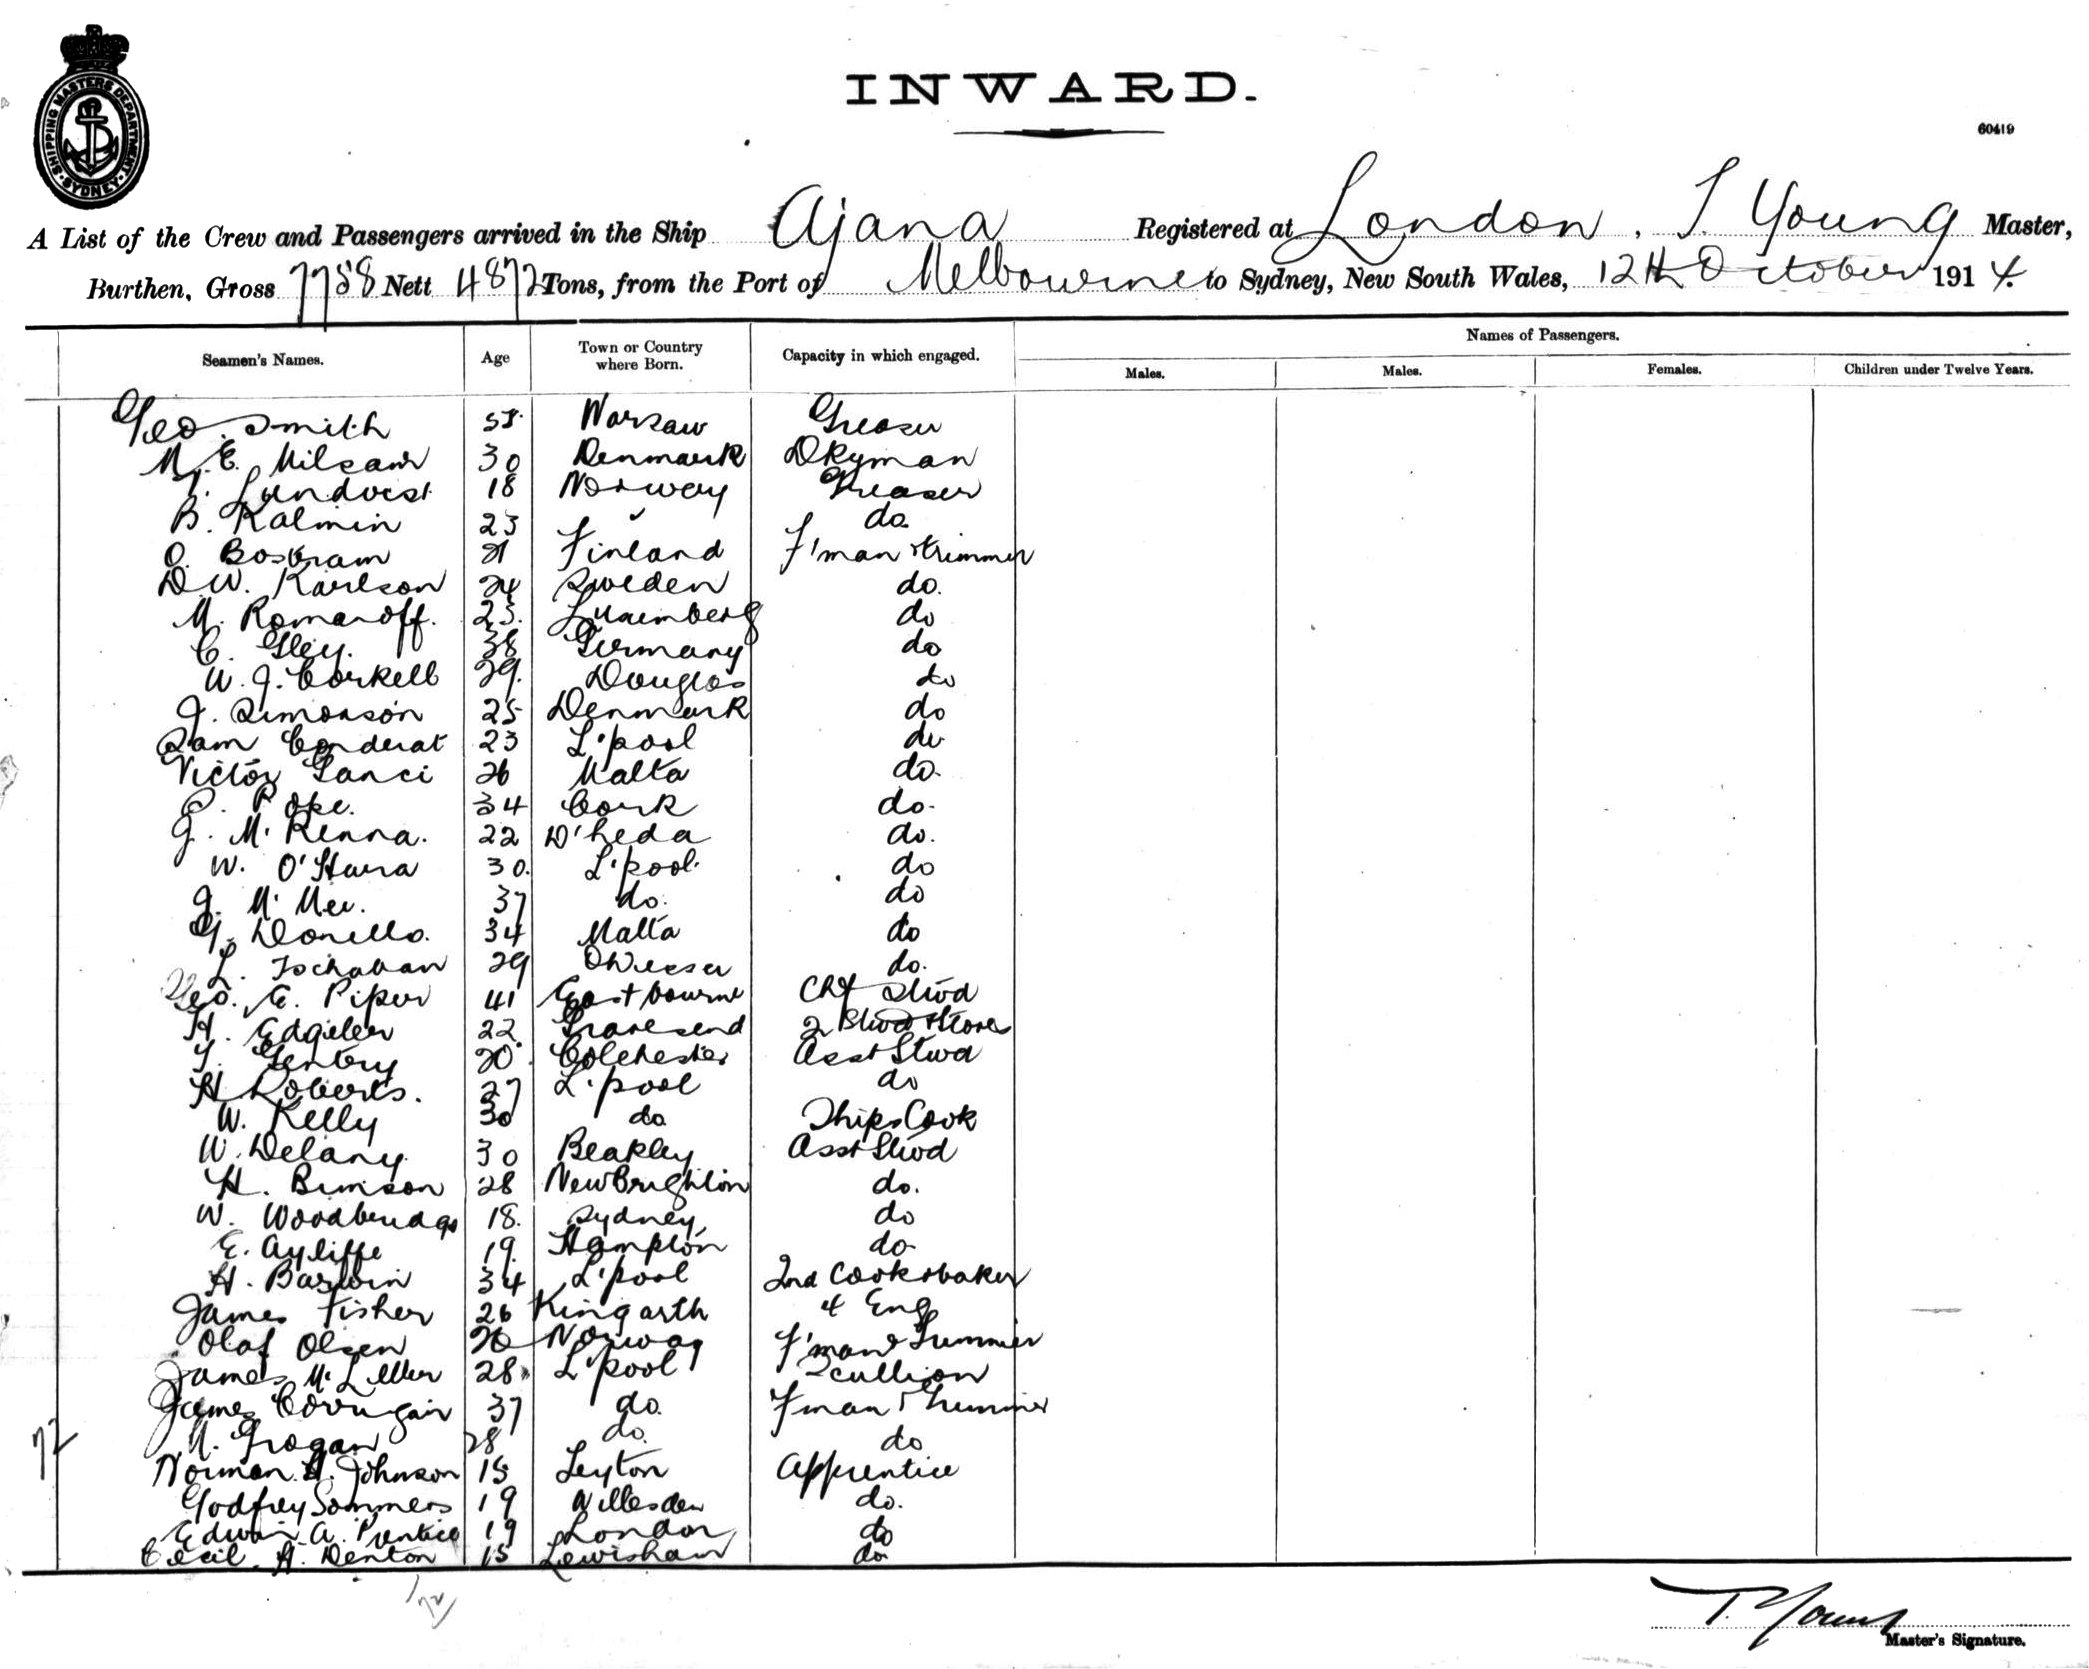 SHIPPING MASTERS DEPARTMENT
SYDNEY
INWARD.
60419
A List of the Crew and Passengers arrived in the Ship Ajana Registered at London, T. Young Master,
Burthen, Gross 7758 Nett 4872 Tons, from the Port of Melbourne to Sydney, New South Wales, 12th October 1914.
Names of Passengers.
Seamen's Names. Age Town or Country where Born. Capacity in which engaged. Males. Males. Females. Children under Twelve Years.
Geo. Smith Warsaw Greaser
30 Denmark Dkyman
18 Norway Greaser
B. Kalmin 23 " do
O. Bostram 21 Finland F'man & trimmer
D.W. Karlson 24 Sweden do.
M. Romanoff. 23. do
C. Gley. 38 Germany do
W. J. Corkell 29. Douglas do
J. Simonson 25 Denmark do
Sam 23 L'pool do
Victor 26 Malta do.
P. Pope. 34 Cork do.
J. McKenna. 22 D'heda do.
W. O'Hara 30. L'pool. do
J. 37 do. do
34 Malta do
L. 29 do.
Geo. E. Piper 41 Eastbourne Chf Stwd
H. 22 Gravesend 2 Stwd & Stores
T. Gentry 20 Colchester Asst Stwd
H. Roberts. 27 L'pool do
W. Kelly 30 do Ships Cook
W. Delany 30 Asst Stwd
H. 28 New Brighton do.
W. Woodbridge 18. Sydney do
E. Ayliffe 19. Hampton do
H. 34 L'pool 2nd Cook & baker
James Fisher 26 Kingarth 4 Eng
Olaf Olsen Norway F'man & Trimmer
James 28. L'pool Scullion
James 37 do. F'man & Trimmer
72
M. Grogan 28 do. do
Norman H. Johnson 15 Leyton Apprentice
Godfrey Sommers 19 Willesden do.
Edwin A. Prentice 19 London do
Cecil H. Denton 15 Lewisham do
72
T. Young
Master's Signature.